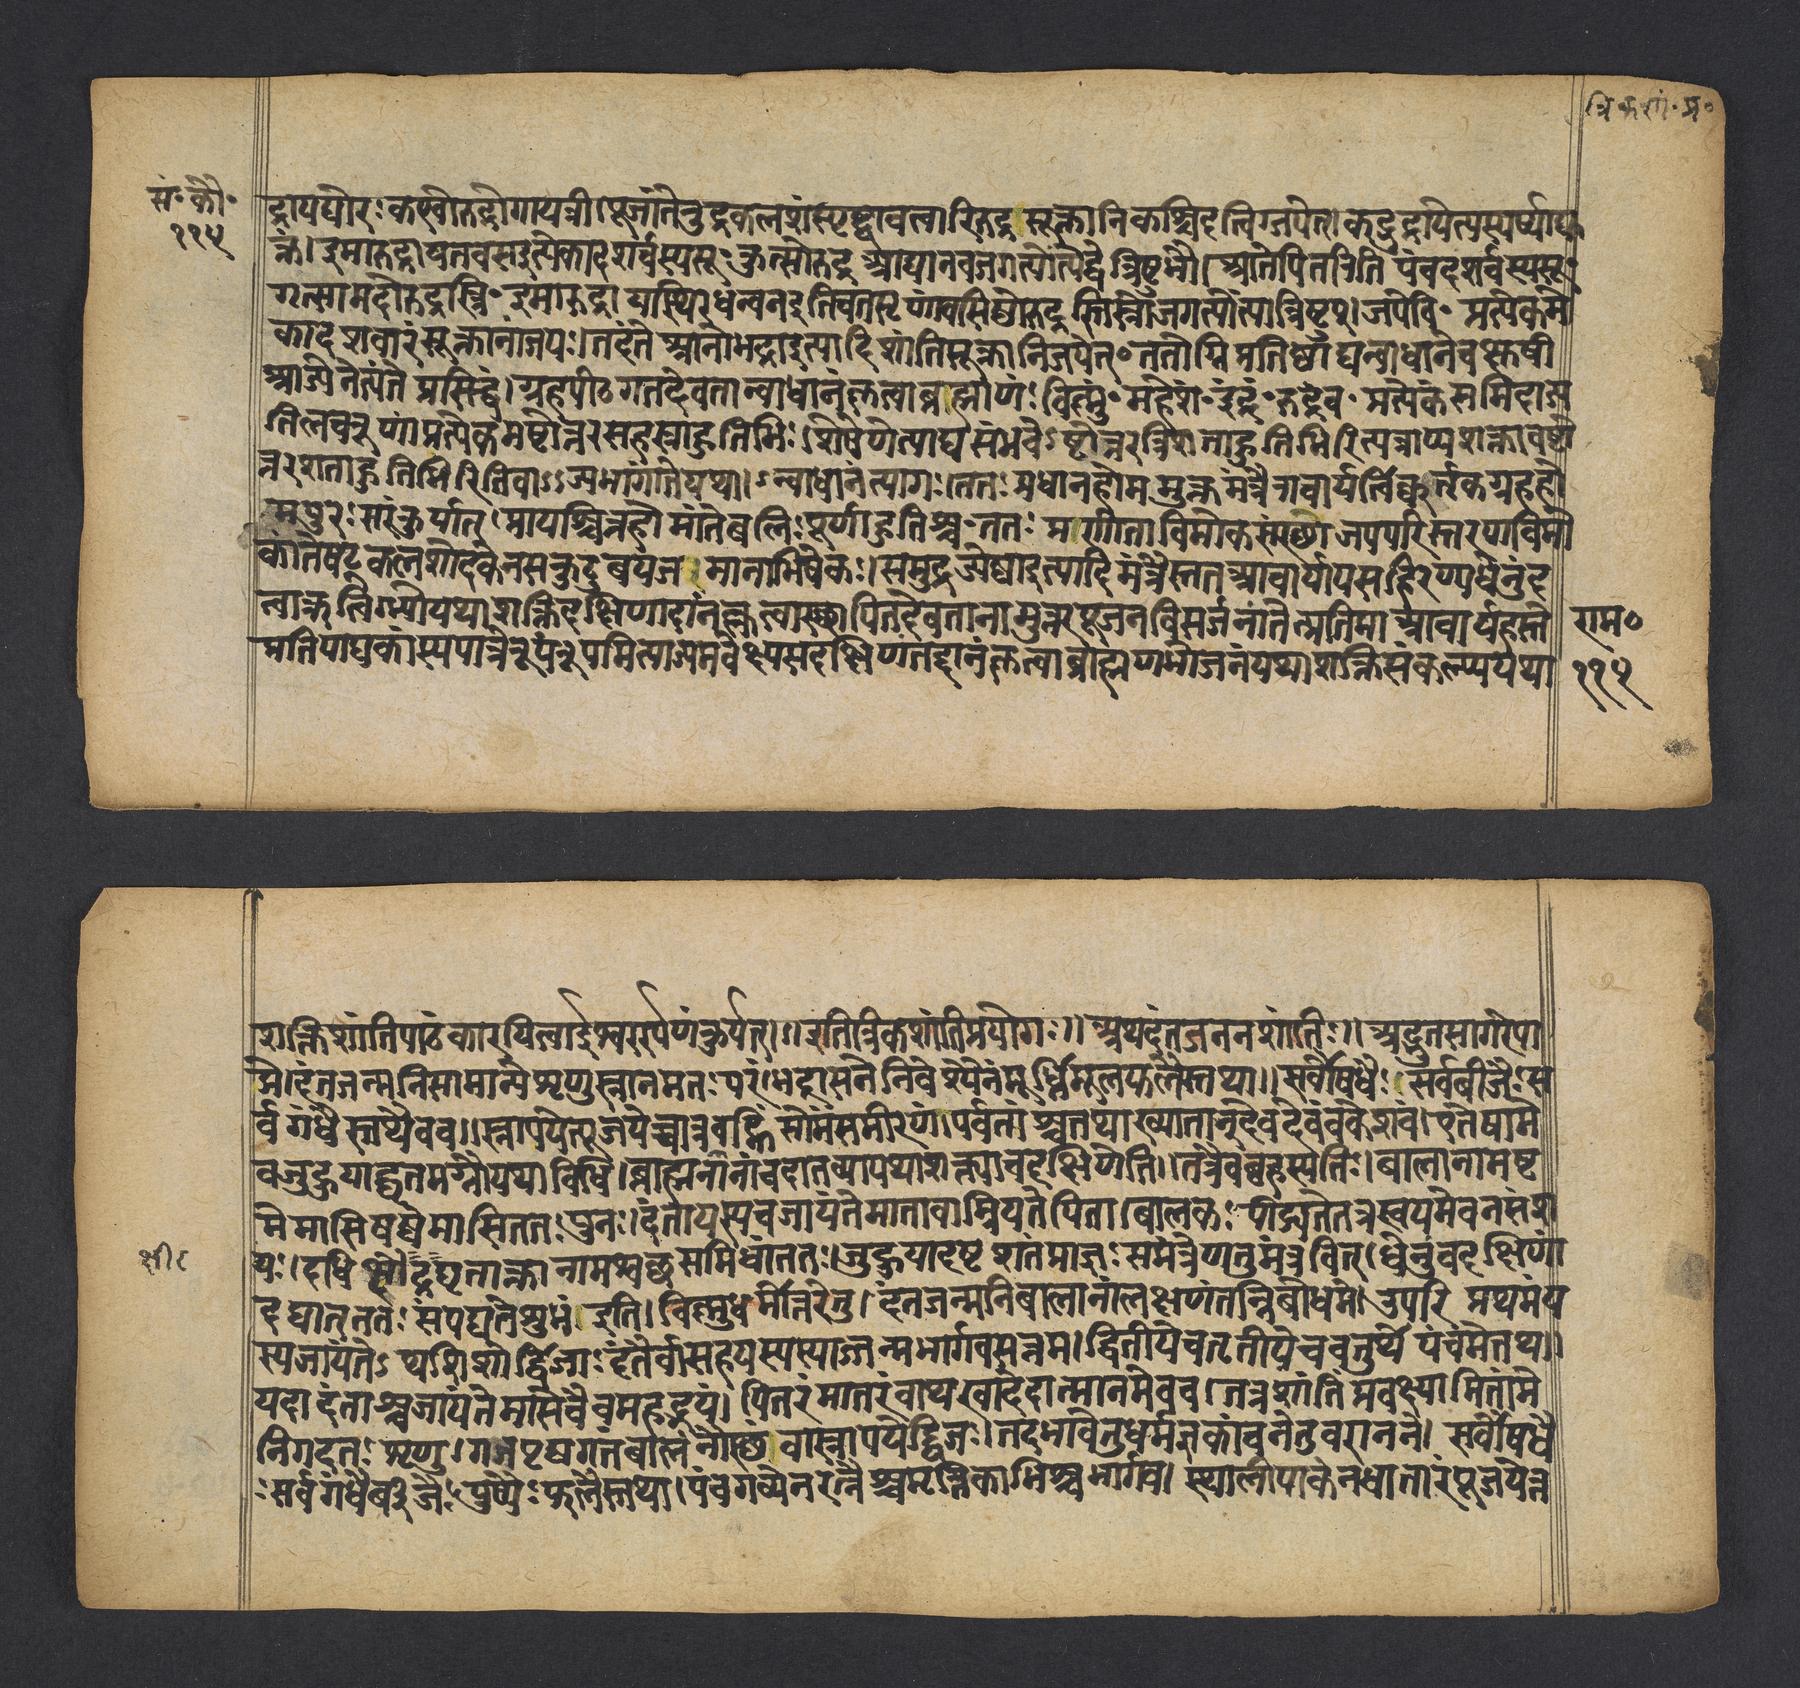 त्रिकशां॰प्र॰
सं॰कौ॰
११५
द्रायघोरः कण्वोरुद्रोगायत्री पूजांतेरुद्रकलशंस्पृष्ट्वाचत्वारिरुद्रसूक्तानिकश्चिदृत्विग्जपेत्। कद्रुद्रायेत्यस्य
क्तं। इमारुद्रायतवसइत्येकादशर्चस्यसू॰ कुत्सोरुद्रः आद्यानवजगत्योंत्येद्वेत्रिष्टुभौ। आतेपितरिति पंचदशर्चस्यसू॰
गृत्समदोरुद्रस्त्रि॰ इमारुद्राय स्थिरधन्वनइतिचतसृणांवसिष्ठोरुद्रस्तिस्रोजगत्योंत्यात्रिष्टुप्। जपेवि॰ प्रत्येकमे
कादशवारंसूक्तानांजपः। तदंते आनोभद्राइत्यादि शांतिसूक्तानिजपेत्॰ ततोग्निप्रतिष्ठाद्यन्वाधानेचक्षुषी
आज्येनेत्यंते प्रसिद्धं। ग्रहपीठगतदेवतान्वाधानंकृत्वा ब्रह्माणं॰ विष्णुं॰ महेशं॰ इंद्रं॰ रुद्रंच॰ प्रत्येकं समिदाज्य
तिलचरुणाप्रत्येकमष्टोत्तरसहस्राहुतिभिः शेषेणेत्याद्यसंभवेऽष्टोत्तरत्रिशताहुतिभिरित्यत्राप्यशक्तावष्टो
त्तरशताहुतिभिरितिवाऽऽज्यभागांतेयथाऽन्वाधानंत्यागः। ततः प्रधानहोममुक्तमंत्रैराचार्यर्त्विक्कर्तृकग्रहहो
मपुरःसरंकुर्यात्। प्रायश्चित्तहोमांतेबलिः पूर्णाहुतिश्च॰ ततः प्रणीताविमोकसंस्थाजपपरिस्तरणविमो
कांतेषट्कलशोदकेनसकुटुंबयजमानाभिषेकः। समुद्रज्येष्ठाइत्यादिमंत्रैस्ततआचार्यायसहिरण्यधेनुंद
त्वाऋत्विग्भ्योयथाशक्तिदक्षिणादानंकृत्वास्थापितदेवतानामुत्तरपूजनविसर्जनांतेतत्प्रतिमाआचार्यहस्ते
प्रतिपाद्यकांस्यपात्रेरूपंरूपमित्याज्यमवेक्ष्यसदक्षिणंतद्दानंकृत्वाब्राह्मणभोजनंयथाशक्तिसंकल्प्ययथा
राम॰
११५
शक्तिशांतिपाठंकारयित्वाईश्वरार्पणंकुर्यात्॥ इतित्रिकशांतिप्रयोगः॥ अथदंतजननशांतिः॥ अद्भुतसागरेपा
द्मे। दंतजन्मनिसामान्येशृणुस्नानमतः परं। भद्रासने निवेश्यैनंमूर्ध्निमूलफलैस्तथा॥ सर्वौषधैः सर्वबीजैः स
र्वगंधैस्तथैवच॥ स्नापयेत्पूजयेच्चात्रवह्निंसोमंसमीरणं। पर्वतांश्चतथाख्यातान्देवदेवंचकेशवं। एतेषामे
वजुहुयाद्घृतमग्नौयथाविधि। ब्राह्मणानांचदातव्यायथाशक्त्याचदक्षिणेति। तत्रैवबृहस्पतिः। बालानामष्ट
मेमासिषष्ठेमासिततः पुनः। दंतायस्यचजायंतेमातावाम्रियतेपिता। बालकः पीड्यतेतत्रस्वयमेवनसंश
यः। दधिक्षौद्रघृताक्तानामश्वत्थसमिधांततः। जुहुयादष्टशतंप्राज्ञः समंत्रेणतुमंत्रवित्। धेनुंचदक्षिणां
दद्यात्ततः संपद्यतेशुभं इति। विष्णुधर्मोत्तरेतु। दंतजन्मनिबालानांलक्षणंतन्निबोधमे। उपरि प्रथमंय
स्यजायंतेऽथशिशोर्द्विजाः दंतैर्वासहयस्यस्याज्जन्मभार्गवसत्तम। द्वितीयेचतृतीयेचचतुर्थेपंचमेतथा॥
यदादंताश्चजायंतेमासेचैवमहद्भयं। पितरंमातरंवाथखादेदात्मानमेवच। तत्रशांतिंप्रवक्ष्यामितांमे
निगदतः शृणु। गजपृष्ठगतंबालंनौस्थंवास्नापयेद्द्विजः। तदभावेतुधर्मज्ञकांचनेतुवरासने। सर्वौषधैः
सर्वगंधैर्बीजैः पुष्पैः फलैस्तथा। पंचगव्येनरत्नैश्चमृत्तिकाभिश्चभार्गव। स्थालीपाकेनधातारंपूजयेत्त